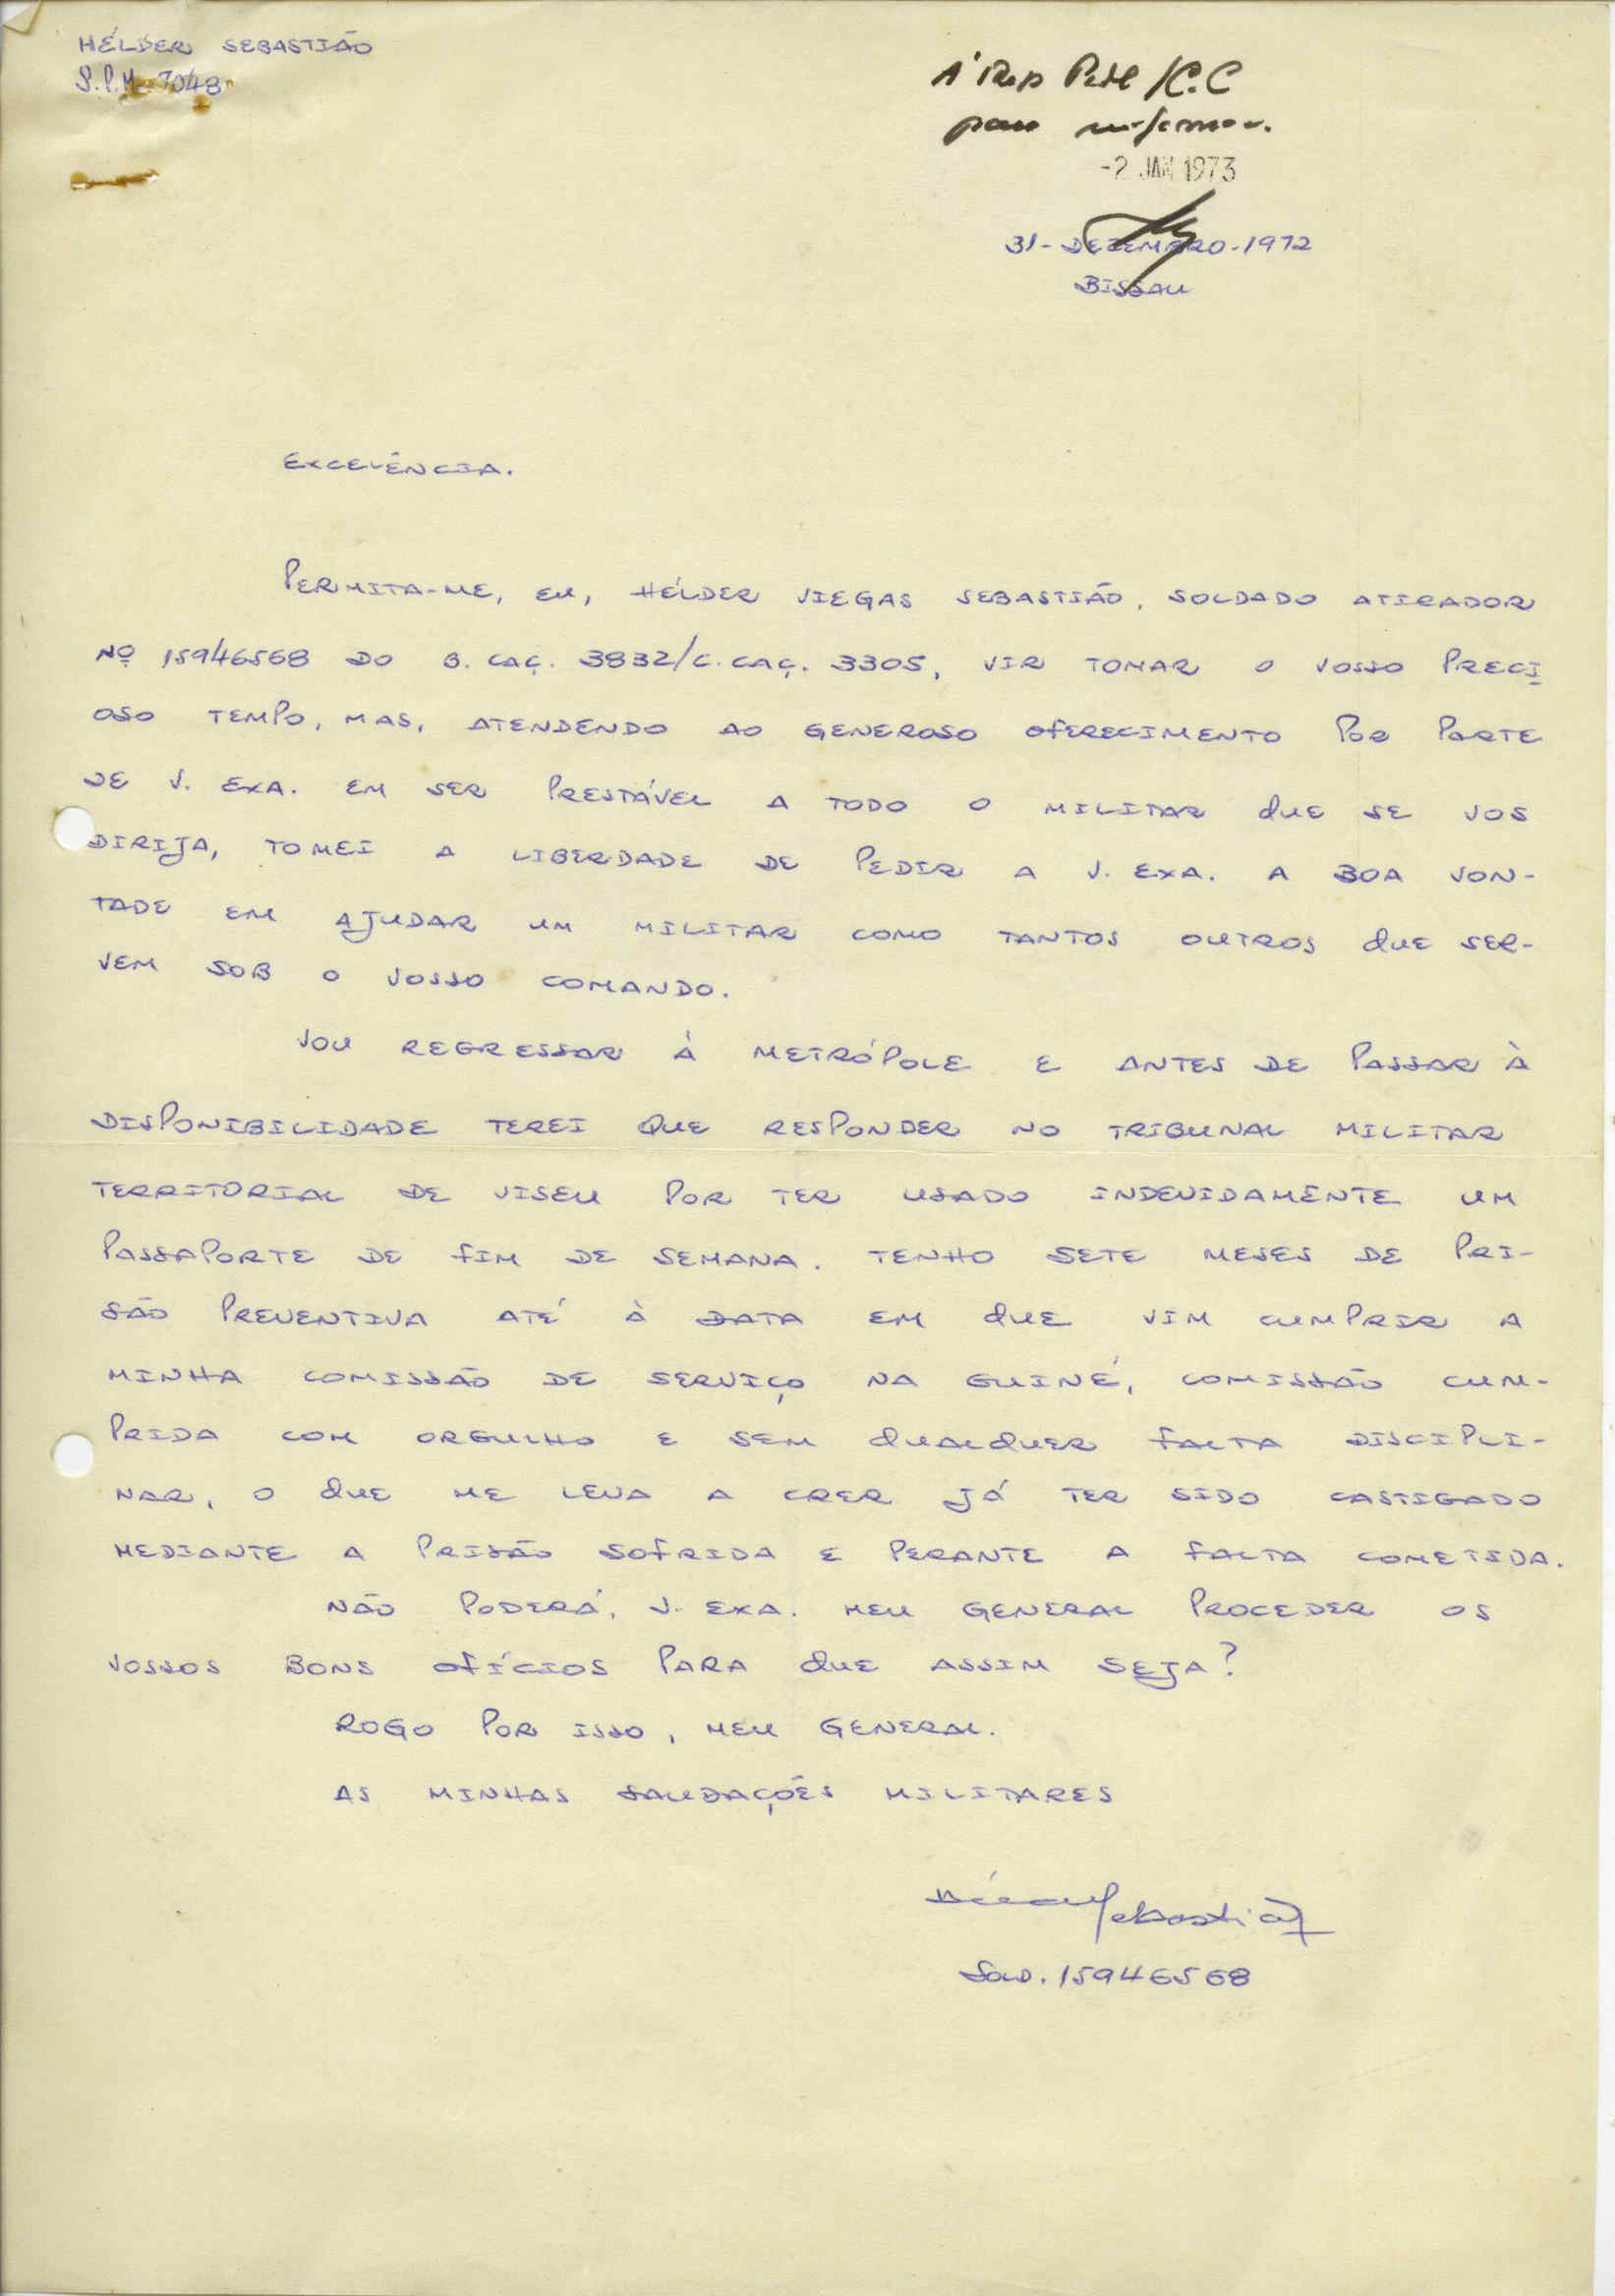 HÉLDER SEBASTIÃO
S.P.M. 7048
À Rep Pess /C.C
para informar.
-2 JAN 1973
31-DEZEMBRO-1972
BISSAU
EXCELÊNCIA.
PERMITA-ME, EU, HÉLDER VIEGAS SEBASTIÃO, SOLDADO ATIRADOR
Nº 15946568 DO B. CAÇ. 3832/C. CAÇ. 3305, VIR TOMAR O VOSSO PRECI
OSO TEMPO, MAS, ATENDENDO AO GENEROSO OFERECIMENTO POR PARTE
DE V. EXA. EM SER PRESTÁVEL A TODO O MILITAR QUE SE VOS
DIRIJA, TOMEI A LIBERDADE DE PEDIR A V. EXA. A BOA VON-
TADE EM AJUDAR UM MILITAR COMO TANTOS OUTROS QUE SER-
VEM SOB O VOSSO COMANDO.
VOU REGRESSAR À METRÓPOLE E ANTES DE PASSAR À
DISPONIBILIDADE TEREI QUE RESPONDER NO TRIBUNAL MILITAR
TERRITORIAL DE VISEU POR TER USADO INDEVIDAMENTE UM
PASSAPORTE DE FIM DE SEMANA. TENHO SETE MESES DE PRI-
SÃO PREVENTIVA ATÉ À DATA EM QUE VIM CUMPRIR A
MINHA COMISSÃO DE SERVIÇO NA GUINÉ, COMISSÃO CUM-
PRIDA COM ORGULHO E SEM QUALQUER FALTA DISCIPLI-
NAR, O QUE ME LEVA A CRER JÁ TER SIDO CASTIGADO
MEDIANTE A PRISÃO SOFRIDA E PERANTE A FALTA COMETIDA.
NÃO PODERÁ, V. EXA. MEU GENERAL PROCEDER OS
VOSSOS BONS OFÍCIOS PARA QUE ASSIM SEJA?
ROGO POR ISSO, MEU GENERAL.
AS MINHAS SAUDAÇÕES MILITARES
Sebastião
SOLD. 15946568